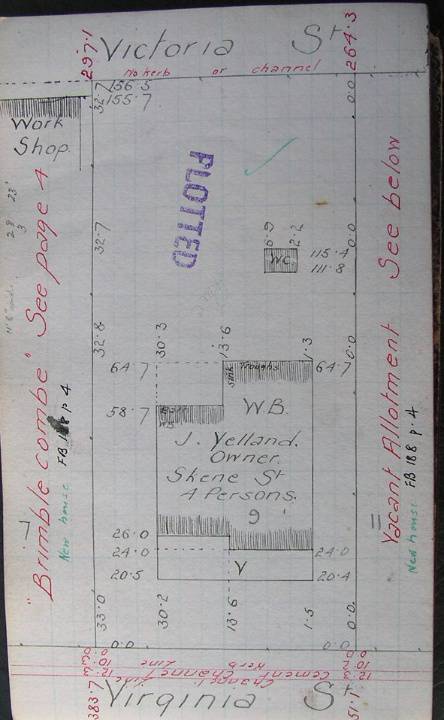 Victoria St
297.1
264.3
No kerb or channel
156.5
155.7
32.7
0.0
Work
Shop.
PLOTTED
"Brimble combe" See page 4
FB 188 p. 4
New house
32.7
6.9
2.2
WC
115.4
111.8
0.0
Vacant Allotment See below
FB 188 p. 4
New house
32.8
30.3
13.6
1.3
0.0
64.7
64.7
Sink
Troughs
58.7
Bath
W.B.
J. Yelland.
Owner.
Skene St
4 Persons.
9
26.0
24.0
24.0
V
20.5
20.4
33.0
30.2
13.6
1.5
0.0
0.0
0.0
Kerb Line
Cement Channel
383.7
Virginia St
51.1